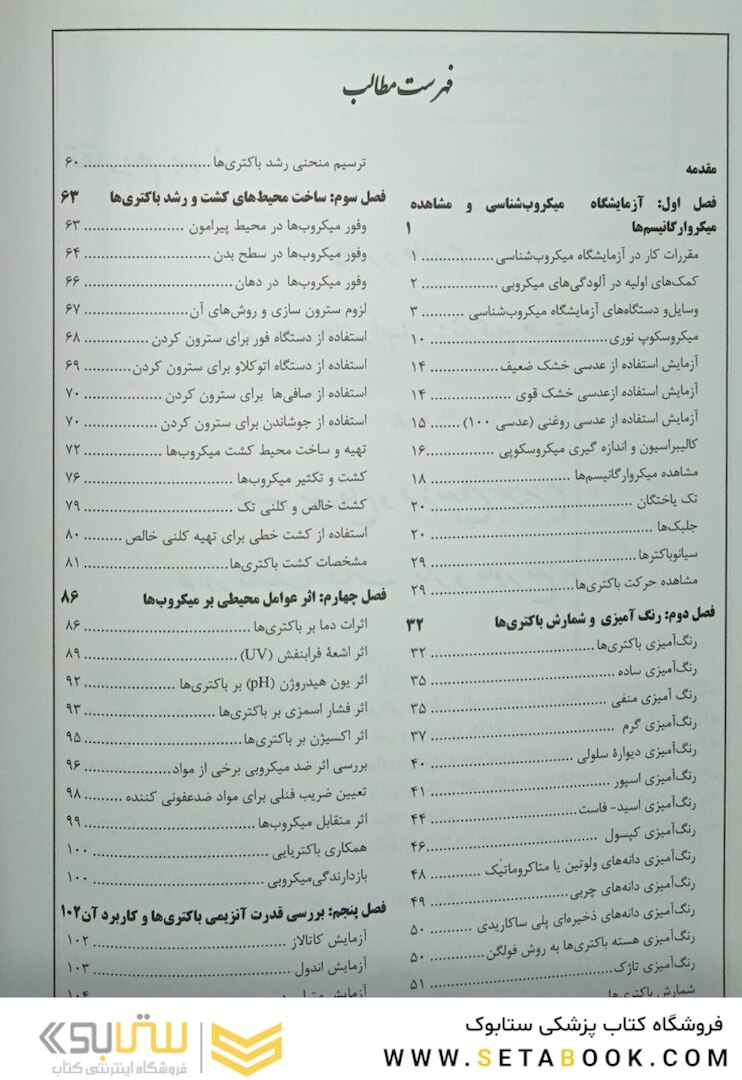 فهرست مطالب
مقدمه
فصل اول: آزمایشگاه میکروب‌شناسی و مشاهده
میکروارگانیسم‌ها ۱
مقررات کار در آزمایشگاه میکروب‌شناسی ................. ۱
کمک‌های اولیه در آلودگی‌های میکروبی .................. ۲
وسایل‌و دستگاه‌های آزمایشگاه میکروب‌شناسی .......... ۳
میکروسکوپ نوری .......................................... ۱۰
آزمایش استفاده از عدسی خشک ضعیف ................ ۱۴
آزمایش استفاده ازعدسی خشک قوی ................... ۱۴
آزمایش استفاده از عدسی روغنی (عدسی ۱۰۰) ....... ۱۵
کالیبراسیون و اندازه گیری میکروسکوپی ................ ۱۶
مشاهده میکروارگانیسم‌ها ................................. ۱۸
تک یاختگان ................................................ ۲۰
جلبک‌ها ..................................................... ۲۰
سیانوباکترها ................................................ ۲۹
مشاهده حرکت باکتری‌ها .................................. ۲۹
فصل دوم: رنگ آمیزی و شمارش باکتری‌ها ۳۲
رنگ‌آمیزی باکتری‌ها ....................................... ۳۲
رنگ‌آمیزی ساده ............................................ ۳۵
رنگ آمیزی منفی ........................................... ۳۵
رنگ‌آمیزی گرم ............................................. ۳۷
رنگ‌آمیزی دیوارۀ سلولی .................................. ۴۰
رنگ‌آمیزی اسپور ........................................... ۴۱
رنگ‌آمیزی اسید- فاست ................................... ۴۴
رنگ‌آمیزی کپسول ......................................... ۴۶
رنگ‌آمیزی دانه‌های ولوتین یا متاکروماتیک ............ ۴۸
رنگ‌آمیزی دانه‌های چربی ................................. ۴۹
رنگ‌آمیزی دانه‌های ذخیره‌ای پلی ساکاریدی .......... ۵۰
رنگ‌آمیزی هسته باکتری‌ها به روش فولگن ............. ۵۰
رنگ‌آمیزی تاژک ............................................ ۵۱
شمارش باکتری‌ها
ترسیم منحنی رشد باکتری‌ها .............................. ۶۰
فصل سوم: ساخت محیط‌های کشت و رشد باکتری‌ها ۶۳
وفور میکروب‌ها در محیط پیرامون ........................ ۶۳
وفور میکروب‌ها در سطح بدن ............................. ۶۴
وفور میکروب‌ها در دهان .................................. ۶۶
لزوم سترون سازی و روش‌های آن ........................ ۶۷
استفاده از دستگاه فور برای سترون کردن ............... ۶۸
استفاده از دستگاه اتوکلاو برای سترون کردن ........... ۶۹
استفاده از صافی‌ها برای سترون کردن ................... ۷۰
استفاده از جوشاندن برای سترون کردن .................. ۷۰
تهیه و ساخت محیط کشت میکروب‌ها ................... ۷۲
کشت و تکثیر میکروب‌ها .................................. ۷۶
کشت خالص و کلنی تک .................................. ۷۹
استفاده از کشت خطی برای تهیه کلنی خالص .......... ۸۰
مشخصات کشت باکتری‌ها ................................. ۸۱
فصل چهارم: اثر عوامل محیطی بر میکروب‌ها ۸۶
اثرات دما بر باکتری‌ها ..................................... ۸۶
اثر اشعۀ فرابنفش (UV) ................................... ۸۹
اثر یون هیدروژن (pH) بر باکتری‌ها ..................... ۹۲
اثر فشار اسمزی بر باکتری‌ها ............................. ۹۳
اثر اکسیژن بر باکتری‌ها ................................... ۹۵
بررسی اثر ضد میکروبی برخی از مواد .................... ۹۶
تعیین ضریب فنلی برای مواد ضدعفونی کننده ......... ۹۸
اثر متقابل میکروب‌ها ...................................... ۹۹
همکاری باکتریایی ......................................... ۱۰۰
بازدارندگی‌میکروبی ........................................ ۱۰۰
فصل پنجم: بررسی قدرت آنزیمی باکتری‌ها و کاربرد آن ۱۰۲
آزمایش کاتالاز ............................................. ۱۰۲
آزمایش اندول .............................................. ۱۰۳
فروشگاه کتاب پزشکی ستابوک
WWW.SETABOOK.COM
ستابوک
فروشگاه اینترنتی کتاب